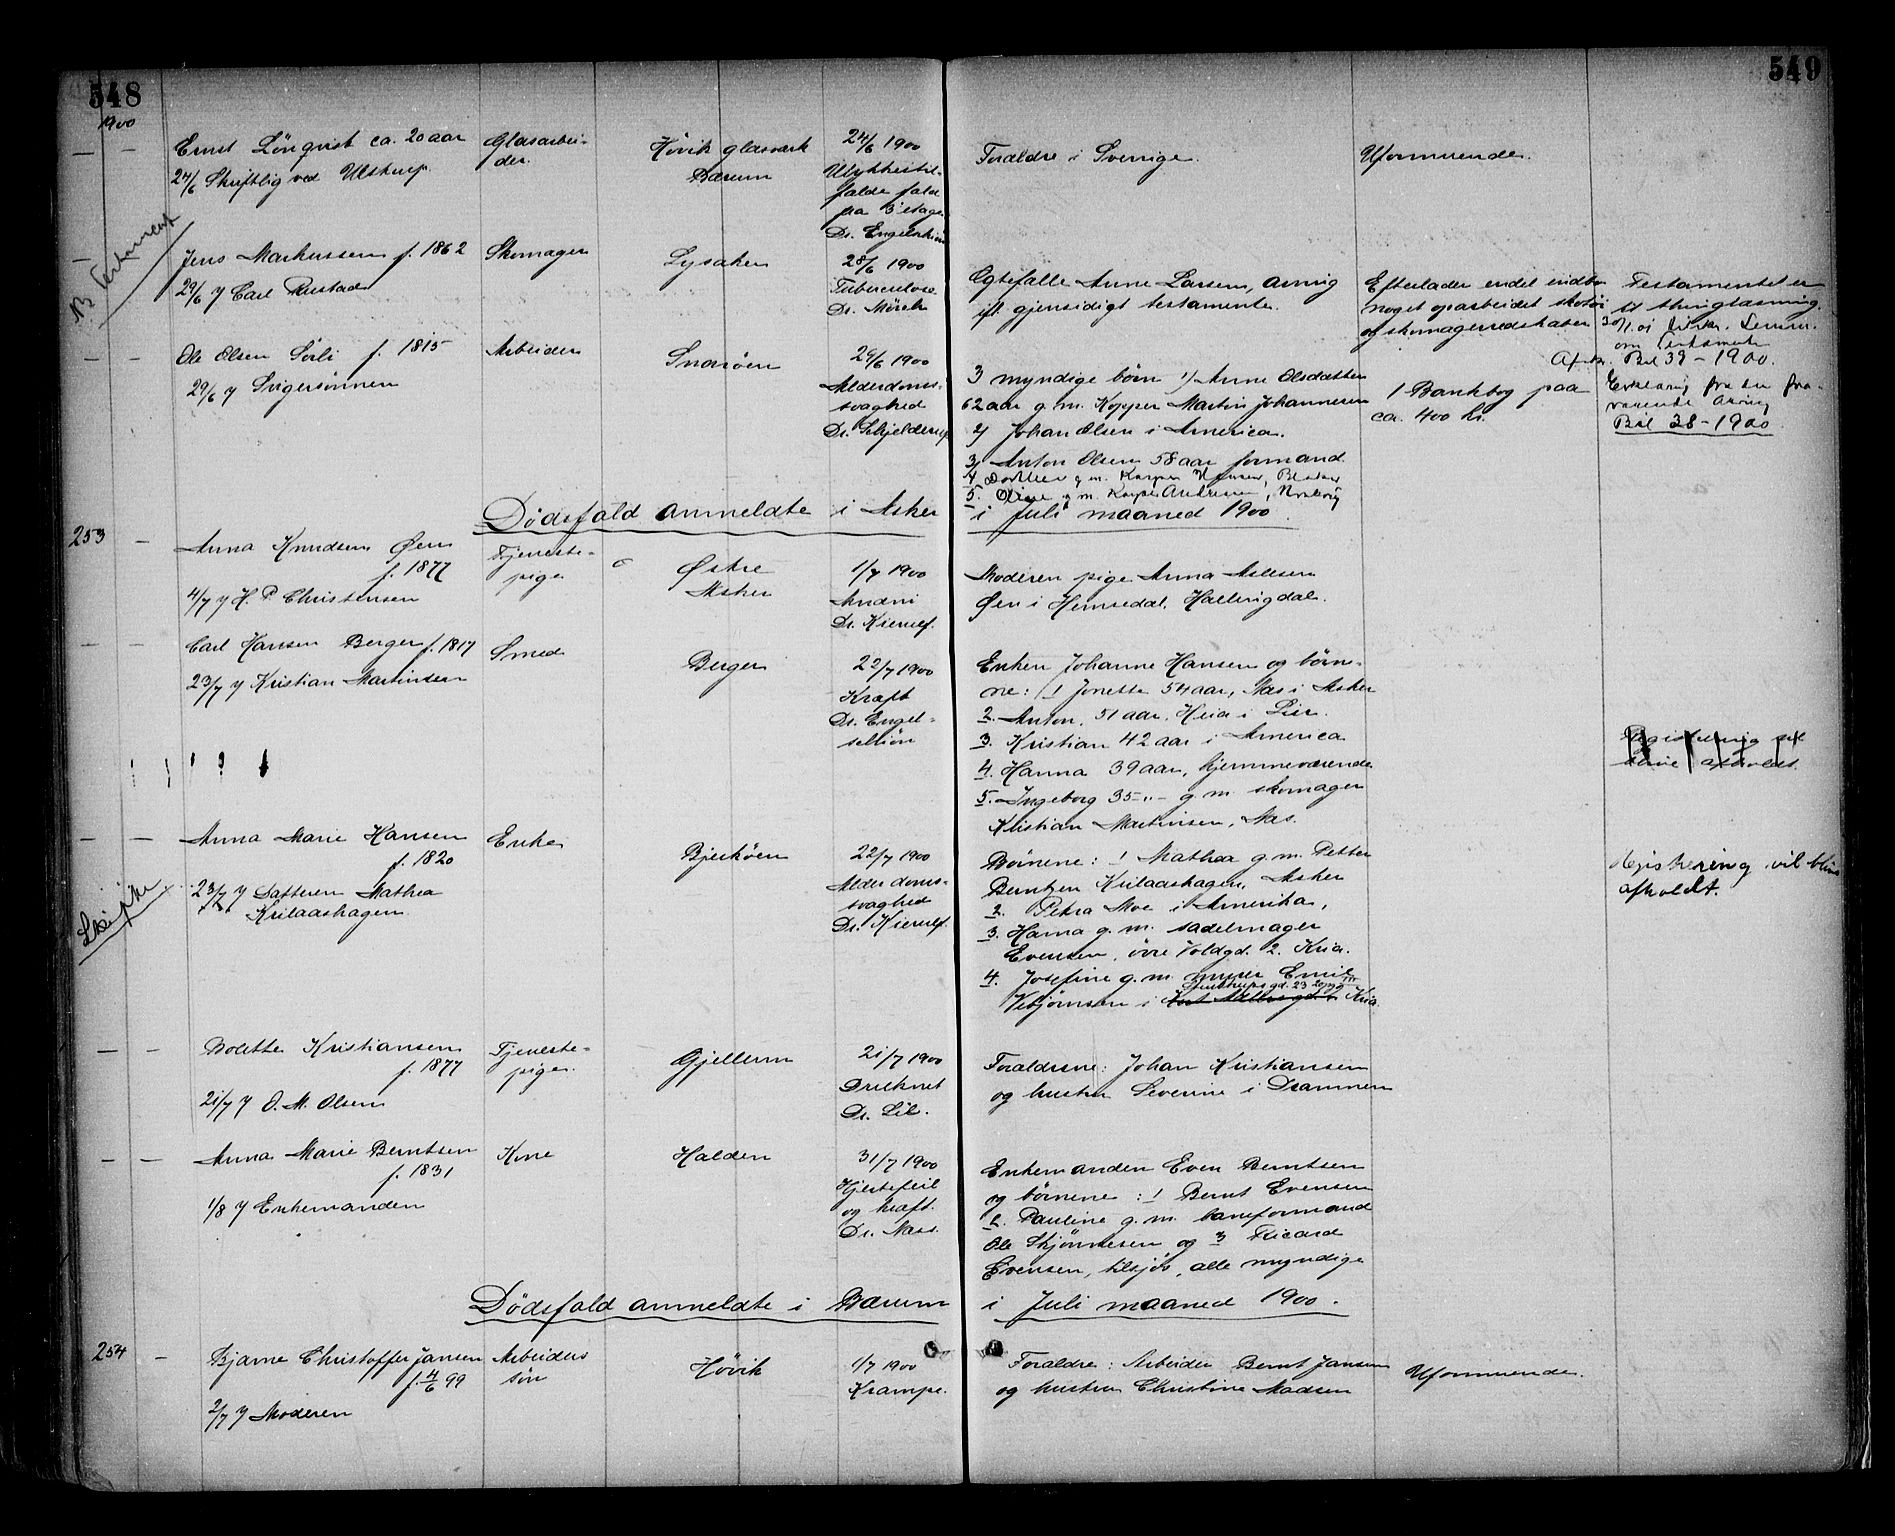 548
549
1900
Ernst Lönqvist ca. 20 aar
24/6 Skriftlig ved Ulstrup.
Glasarbei-
der.
Hövik glasværk
Bærum
24/6 1900
Ulykkestil-
fælde fald
fra 3 etage
Dr. Engelschiøn
Forældre i Sverrige.
Uformuende.
NB Testament
Jens Markussen f. 1862
29/6 y Carl Rustad
Skomager
Lysaker
28/6 1900
Tuberculose
Dr. Mörch
Ægtefælle Anne Larsen, arving
ifl. gjensidigt testamente.
Efterlader endel indbo
noget oparbeidet skotøi
og skomagerredskaber
Testamentet er
til thinglæsning.
om testamente
Bil 39 - 1900.
Ole Olsen Sörli f. 1815
29/6 y Svigersønnen
Arbeider
Snarøen
29/6 1900
Alderdoms-
svaghed
Dr. Schjelderup
3 myndige børn 1) Anne Olsdatter
62 aar g. m. Kopper Martin Johannesen
2) Johan Olsen i America.
3) Anton Olsen 58 aar formand
4 g. m. Kasper
5. Oline g. m.
1 Bankbog paa
ca. 400 kr.
Erklæring fra den fra-
værende arving
Bil 38 - 1900.
Dødsfald anmeldte i Asker i Juli maaned 1900.
253
Anna Knudsen Øen
f. 1877
4/7 y H. P. Christensen
Tjeneste-
pige
Østre
Asker
1/7 1900
Dr. Kierulf.
Moderen pige Anna Aslesen
Øen i Hemsedal, Hallingdal.
Carl Hansen Berger f. 1817
23/7 y Kristian Martinsen
Smed
Berger
22/7 1900
Kræft
Dr. Engel-
schiøn
Enken Johanne Hansen og børne-
ne: 1 Jonette 54 aar, Næs i Asker
2. Anton, 51 aar, Hria i Lier.
3. Kristian 42 aar i America
4. Hanna 39 aar, hjemmeværende
5. Ingeborg 35 -"- g. m. skomager
Kristian Martinsen, Næs.
Registrering vil
blive afholdt.
Anna Marie Hansen
f. 1820
23/7 y Datteren Mathea
Krilaashagen
Enke
Bjerkøen
22/7 1900
Alderdoms-
svaghed
Dr. Kierulf.
Børnene: 1 Mathea g. m. Petter
Berntzen Krilaashagen, Asker
2. Petra Moe i Amerika,
3. Hanna g. m. sadelmager
Evensen, øvre Voldgd. 2. Kria.
4. Josefine g. m. murer Emil
Vebjørnsen i Kria.
Registrering vil blive
afholdt.
Skifte
Bolette Kristiansen
f. 1877
21/7 y O. M. Olsen
Tjeneste-
pige.
Gjellum
21/7 1900
Druknet
Dr. Lil.
Forældrene: Johan Kristiansen
og hustru Severine i Drammen
Anna Marie Berntsen
f. 1831
1/8 y Enkemanden
Kone
Halden
31/7 1900
Hjertefeil
og kræft.
Dr. Næss.
Enkemanden Even Berntsen
og børnene: 1 Bernt Evensen
2. Pauline g. m. baneformand
Ole Skjønnesen og 3 Ricard
Evensen, tilsjøs, alle myndige
Dødsfald anmeldte i Bærum i Juli maaned 1900.
254
Bjarne Christoffer Jansen
f. 4/6 99
2/7 y Moderen
Arbeiders
søn
Hövik
1/7 1900
Krampe.
Forældre: Arbeider Bernt Jansen
og hustru Christine Madsen
Uformuende.